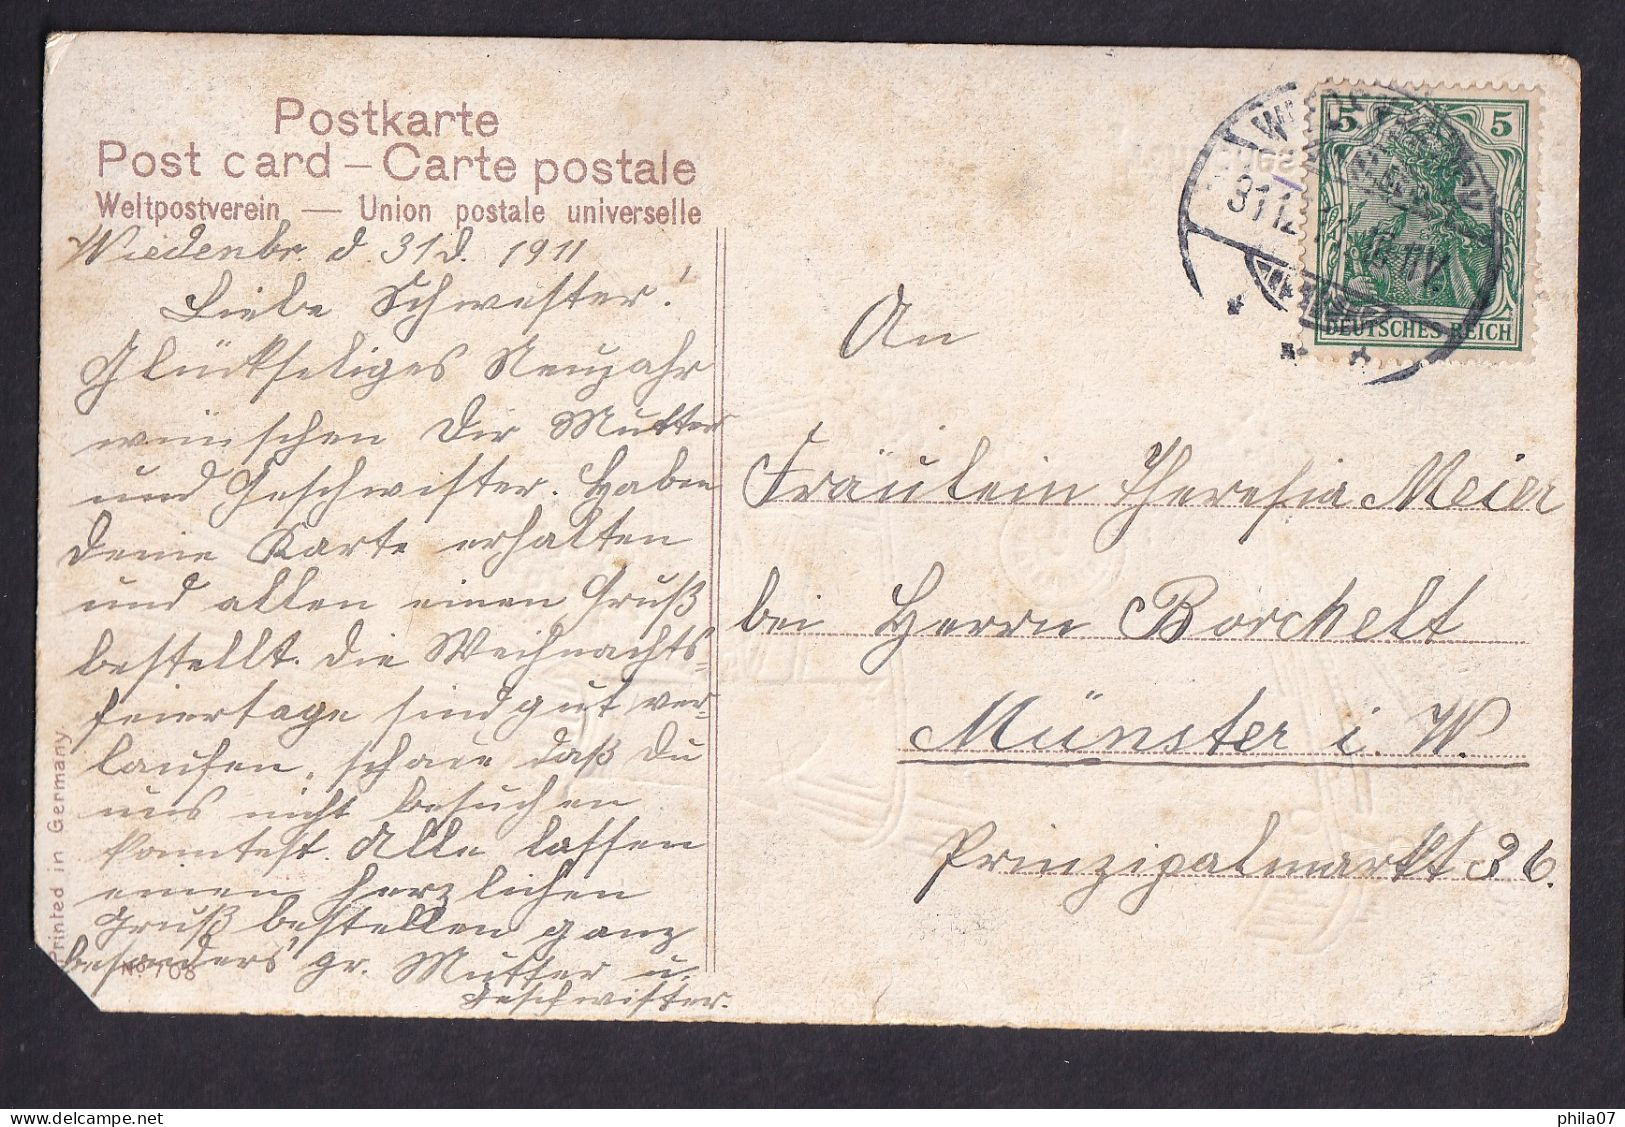 Postkarte
Post card – Carte postale
Weltpostverein — Union postale universelle
Wiedenbr. d. 31 d. 1911
Liebe Schwester!
Glückseliges Neujahr
wünschen Dir Mutter
und Geschwister. Haben
deine Karte erhalten
und allen einen Gruß
bestellt. Die Weihnachts-
feiertage sind gut ver-
laufen, schade daß Du
uns nicht besuchen
konntest. Alle lassen
einen herzlichen
Gruß bestellen ganz
besonders gr. Mutter u.
Geschwister.
Printed in Germany
No 708
5 5
DEUTSCHES REICH
31 12
An
Fräulein Theresia Meier
bei Herrn Borchelt
Münster i. W.
Prinzipalmarkt 36.
phila07